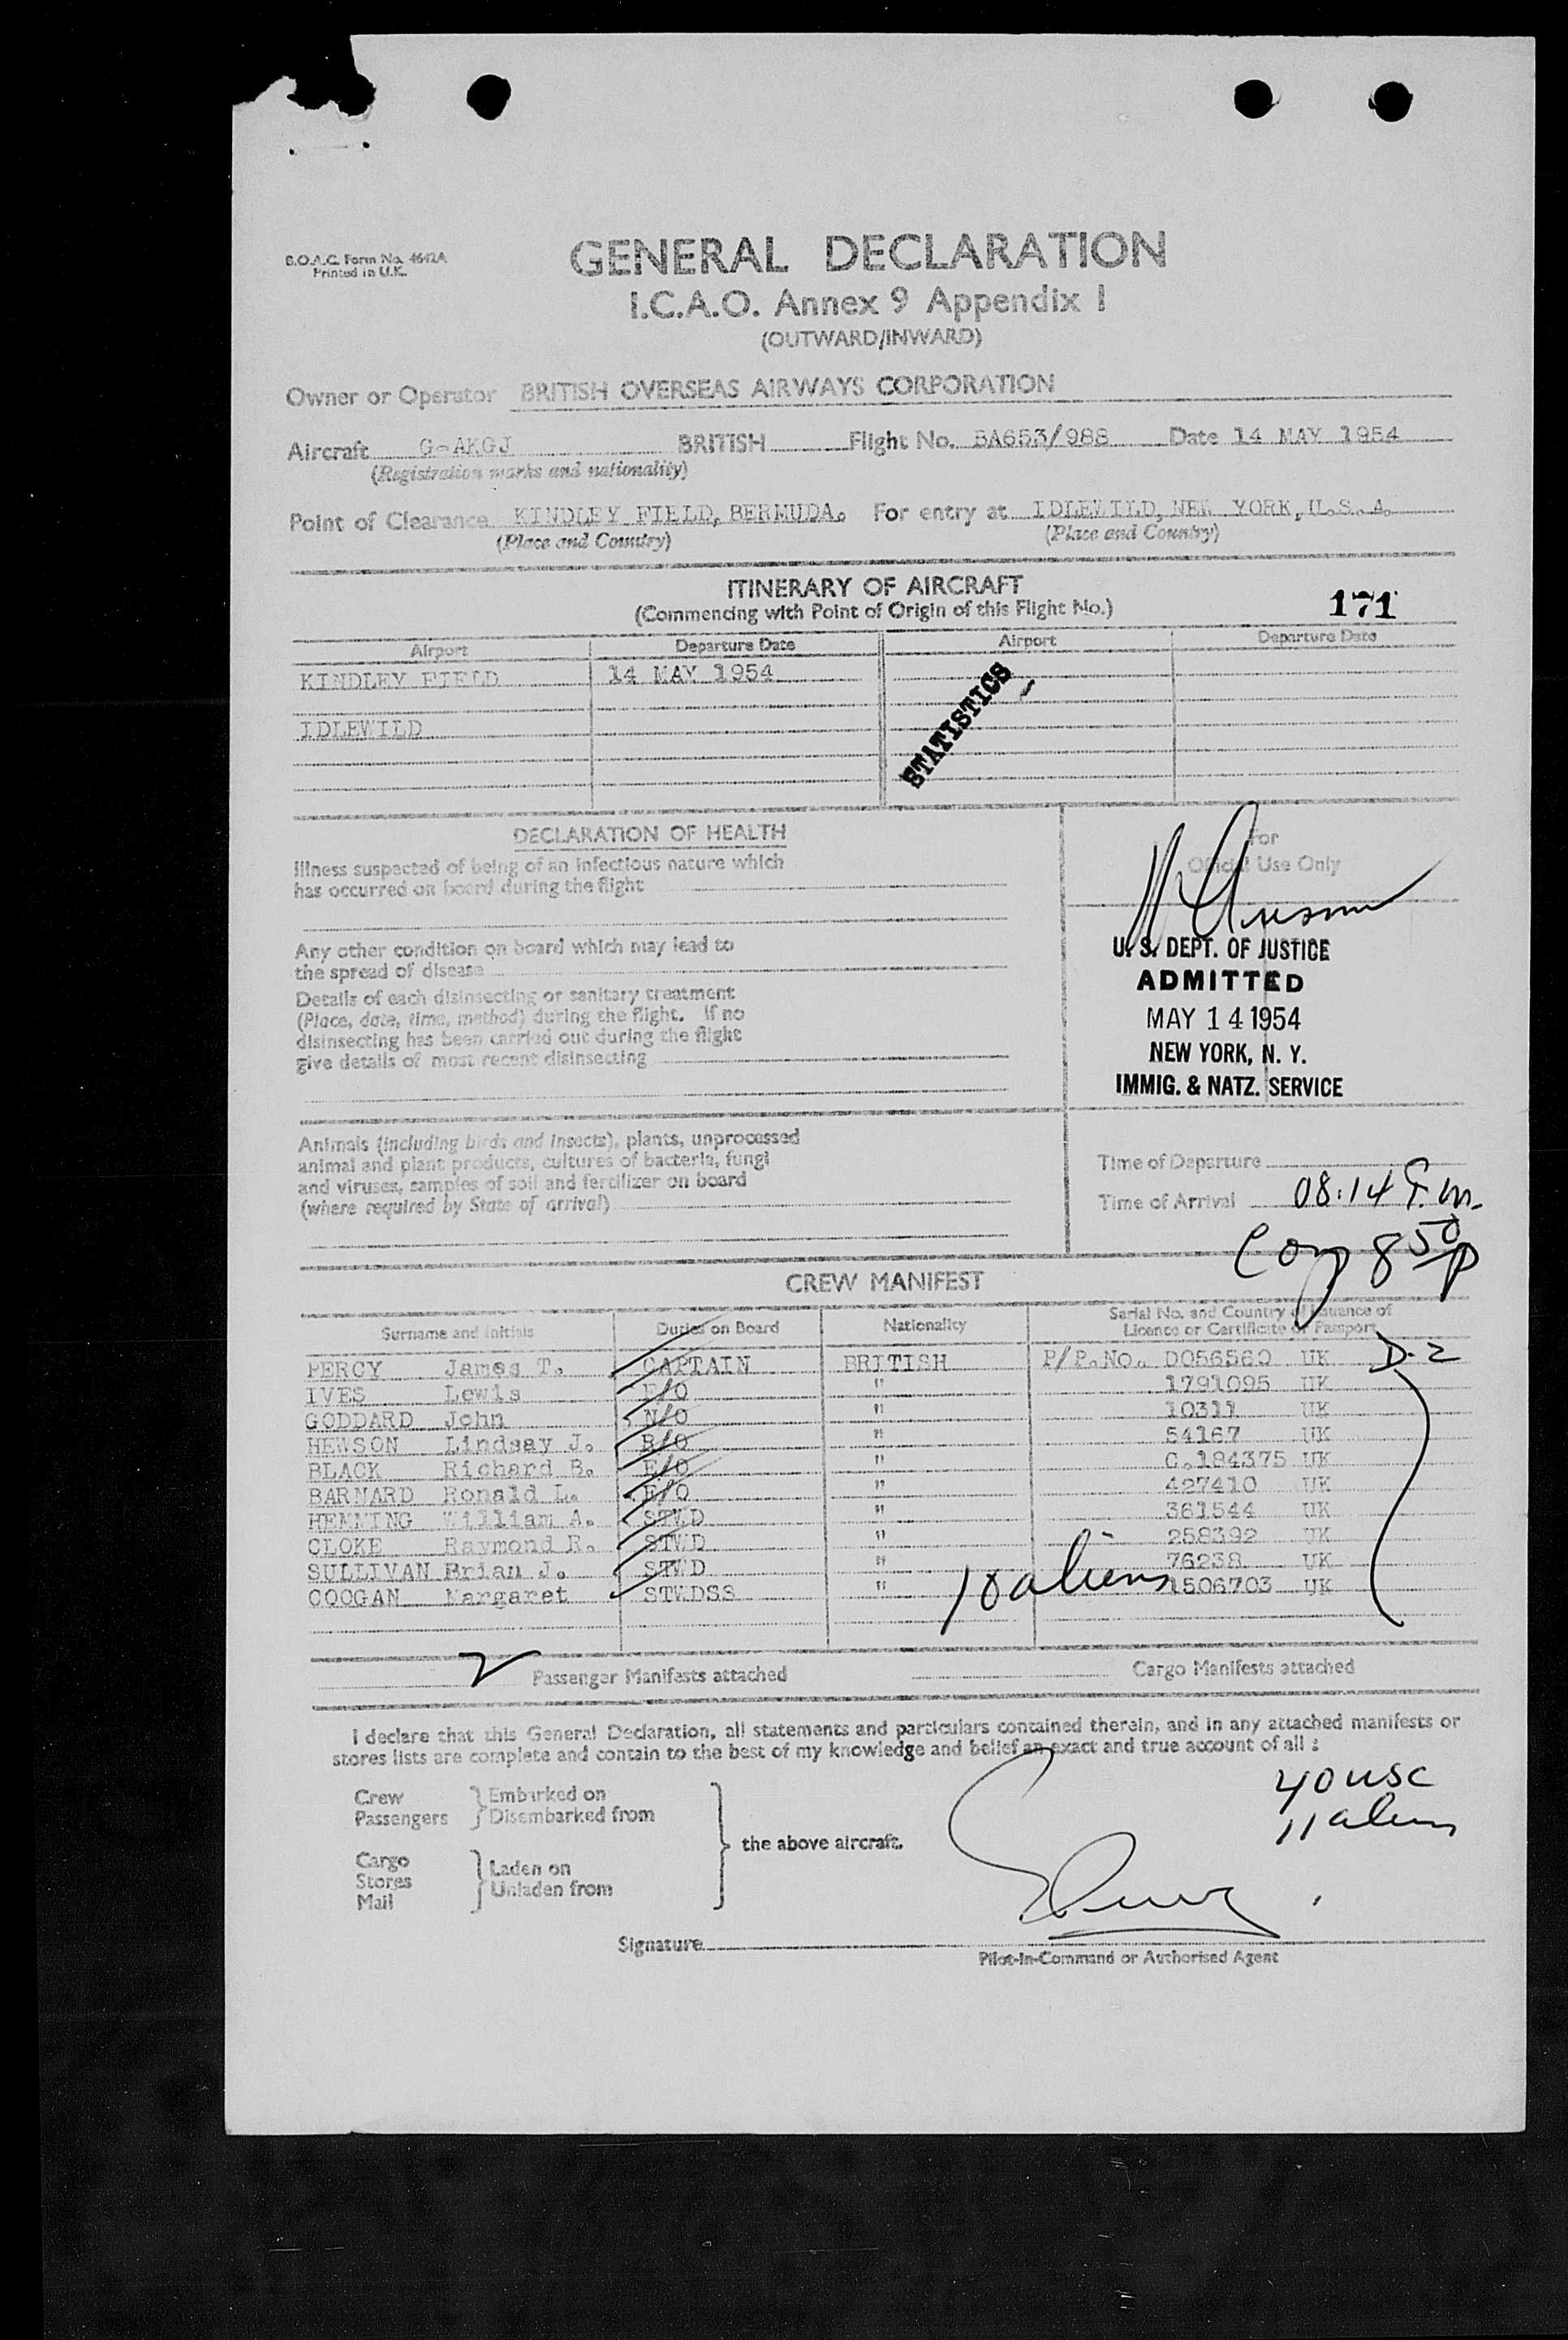 B.O.A.C. Form No. 4642A
Printed in U.K.
GENERAL DECLARATION
I.C.A.O. Annex 9 Appendix I
(OUTWARD/INWARD)
Owner or Operator BRITISH OVERSEAS AIRWAYS CORPORATION
Aircraft G-AKGJ BRITISH Flight No. BA653/988 Date 14 MAY 1954
(Registration marks and nationality)
Point of Clearance KINDLEY FIELD, BERMUDA. For entry at IDLEWILD, NEW YORK, U.S.A.
(Place and Country) (Place and Country)
ITINERARY OF AIRCRAFT
(Commencing with Point of Origin of this Flight No.) 171
Airport Departure Date Airport Departure Date
KINDLEY FIELD 14 MAY 1954
IDLEWILD
STATISTICS
DECLARATION OF HEALTH
Illness suspected of being of an infectious nature which
has occurred on board during the flight
Any other condition on board which may lead to
the spread of disease
Details of each disinsecting or sanitary treatment
(Place, date, time, method) during the flight. If no
disinsecting has been carried out during the flight
give details of most recent disinsecting
For
Official Use Only
U.S. DEPT. OF JUSTICE
ADMITTED
MAY 14 1954
NEW YORK, N. Y.
IMMIG. & NATZ. SERVICE
Animals (including birds and insects), plants, unprocessed
animal and plant products, cultures of bacteria, fungi
and viruses, samples of soil and fertilizer on board
(where required by State of arrival)
Time of Departure
Time of Arrival 08:14 P.m.
8 50 p
CREW MANIFEST
Surname and Initials Duties on Board Nationality Serial No. and Country of Issuance of
Licence or Certificate or Passport
PERCY James T. CAPTAIN BRITISH P/P.No. D056560 UK D-2
IVES Lewis F/O " 1791095 UK
GODDARD John N/O " 10311 UK
HEWSON Lindsay J. R/O " 54167 UK
BLACK Richard B. E/O " C.184375 UK
BARNARD Ronald L. E/O " 427410 UK
HEMMING William A. STWD " 361544 UK
CLOKE Raymond R. STWD " 258392 UK
SULLIVAN Brian J. STWD " 76238 UK
COOGAN Margaret STWDSS " 1506703 UK
10 aliens
2 Passenger Manifests attached Cargo Manifests attached
I declare that this General Declaration, all statements and particulars contained therein, and in any attached manifests or
stores lists are complete and contain to the best of my knowledge and belief an exact and true account of all :
Crew Embarked on
Passengers Disembarked from
the above aircraft.
Cargo
Stores Laden on
Mail Unladen from
40 USC
11 aliens
Signature
Pilot-in-Command or Authorised Agent